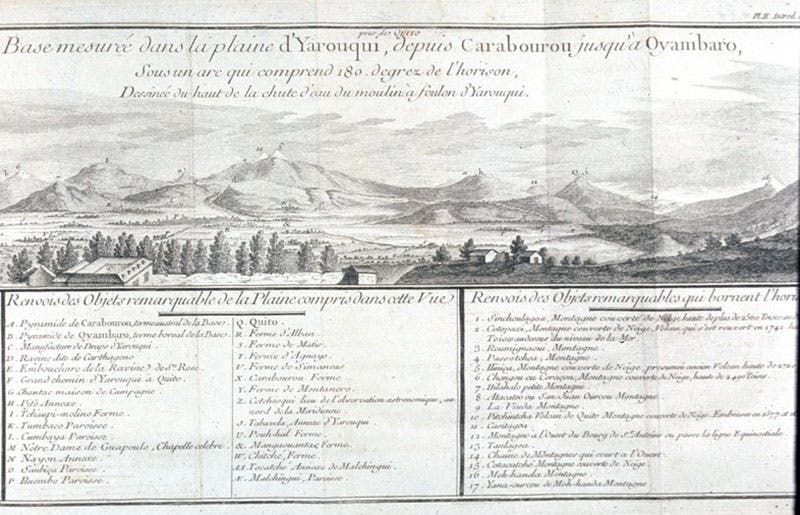 Pl. II. Introd.
près de QUITO
Base mesurée dans la plaine d'Yarouqui, depuis Carabourou jusqu'à Oyambaro,
Sous un arc qui comprend 180. degrez de l'horison,
Dessinée du haut de la chute d'eau du moulin à foulon d'Yarouqui.
Renvois des Objets remarquable de la Plaine compris dans cette Vue
A. Pyramide de Carabourou, terme austral de la Base.
B. Pyramide de Oyambaro, terme boreal de la Base.
C. Manufacture de Draps d'Yarouqui.
D. Ravine dite de Carthagene
E. Embouchure de la Ravine de Ste. Rose.
F. Grand chemin d'Yarouqui à Quito.
G. maison de Campagne
H. Pifo Annexe
I. Tchaupi-molino Ferme
K. Tumbaco Paroisse.
L. Cumbaya Paroisse
M. Nôtre Dame de Guapoulo, Chapelle celebre.
N. Nayon Annexe
O. Paroisse.
P. Puembo Paroisse.
Q. Quito.
R. Ferme d'Alban.
S. Ferme de
T. Ferme d'Agnayo
V. Ferme de Simancas
X. Carabourou Ferme
Y. Ferme de Montanero.
Z. Cotchesqui lieu de l'observation astronomique, au
nord de la Meridienne
Annexe d'Yarouqui
Ferme.
Ferme.
W. Chitche, Ferme.
Tocatche Annexe de Malchingui.
Æ. Malchingui, Paroisse.
Renvois des Objets remarquables qui bornent l'hori
1. Sinchoulagoa, Montagne couverte de Neige, haute de plus de 2500 Toises au
2. Cotopaxi, Montagne couverte de Neige, Volcan qui s'est rouvert en 1742. ha
Toises au dessus du niveau de la Mer.
3. Roumignaoui, Montagne.
4. Passotchoa, Montagne
5. Iliniça, Montagne couverte de Neige, presumé ancien Volcan haute de 27
6. Chongon ou Coraçon, Montagne couverte de Neige, haute de 2490 Toises.
7. petite Montagne
8. Atacatso ou San Juan Ourcou Montagne.
9. La Viuda Montagne.
10. Pitchintcha Volcan de Quito Montagne couverte de Neige. Embrasée en 1577. et
11.
12. Montagne à l'Ouest du Bourg de St. Antoine ou passe la ligne Equinoctiale
13. Tanlagoa.
14. Chaine de Montagnes qui court à l'Ouest.
15. Cotacatche Montagne couverte de Neige.
16. Moh-handa Montagne
17. Yana-ourcou de Moh-handa Montagne